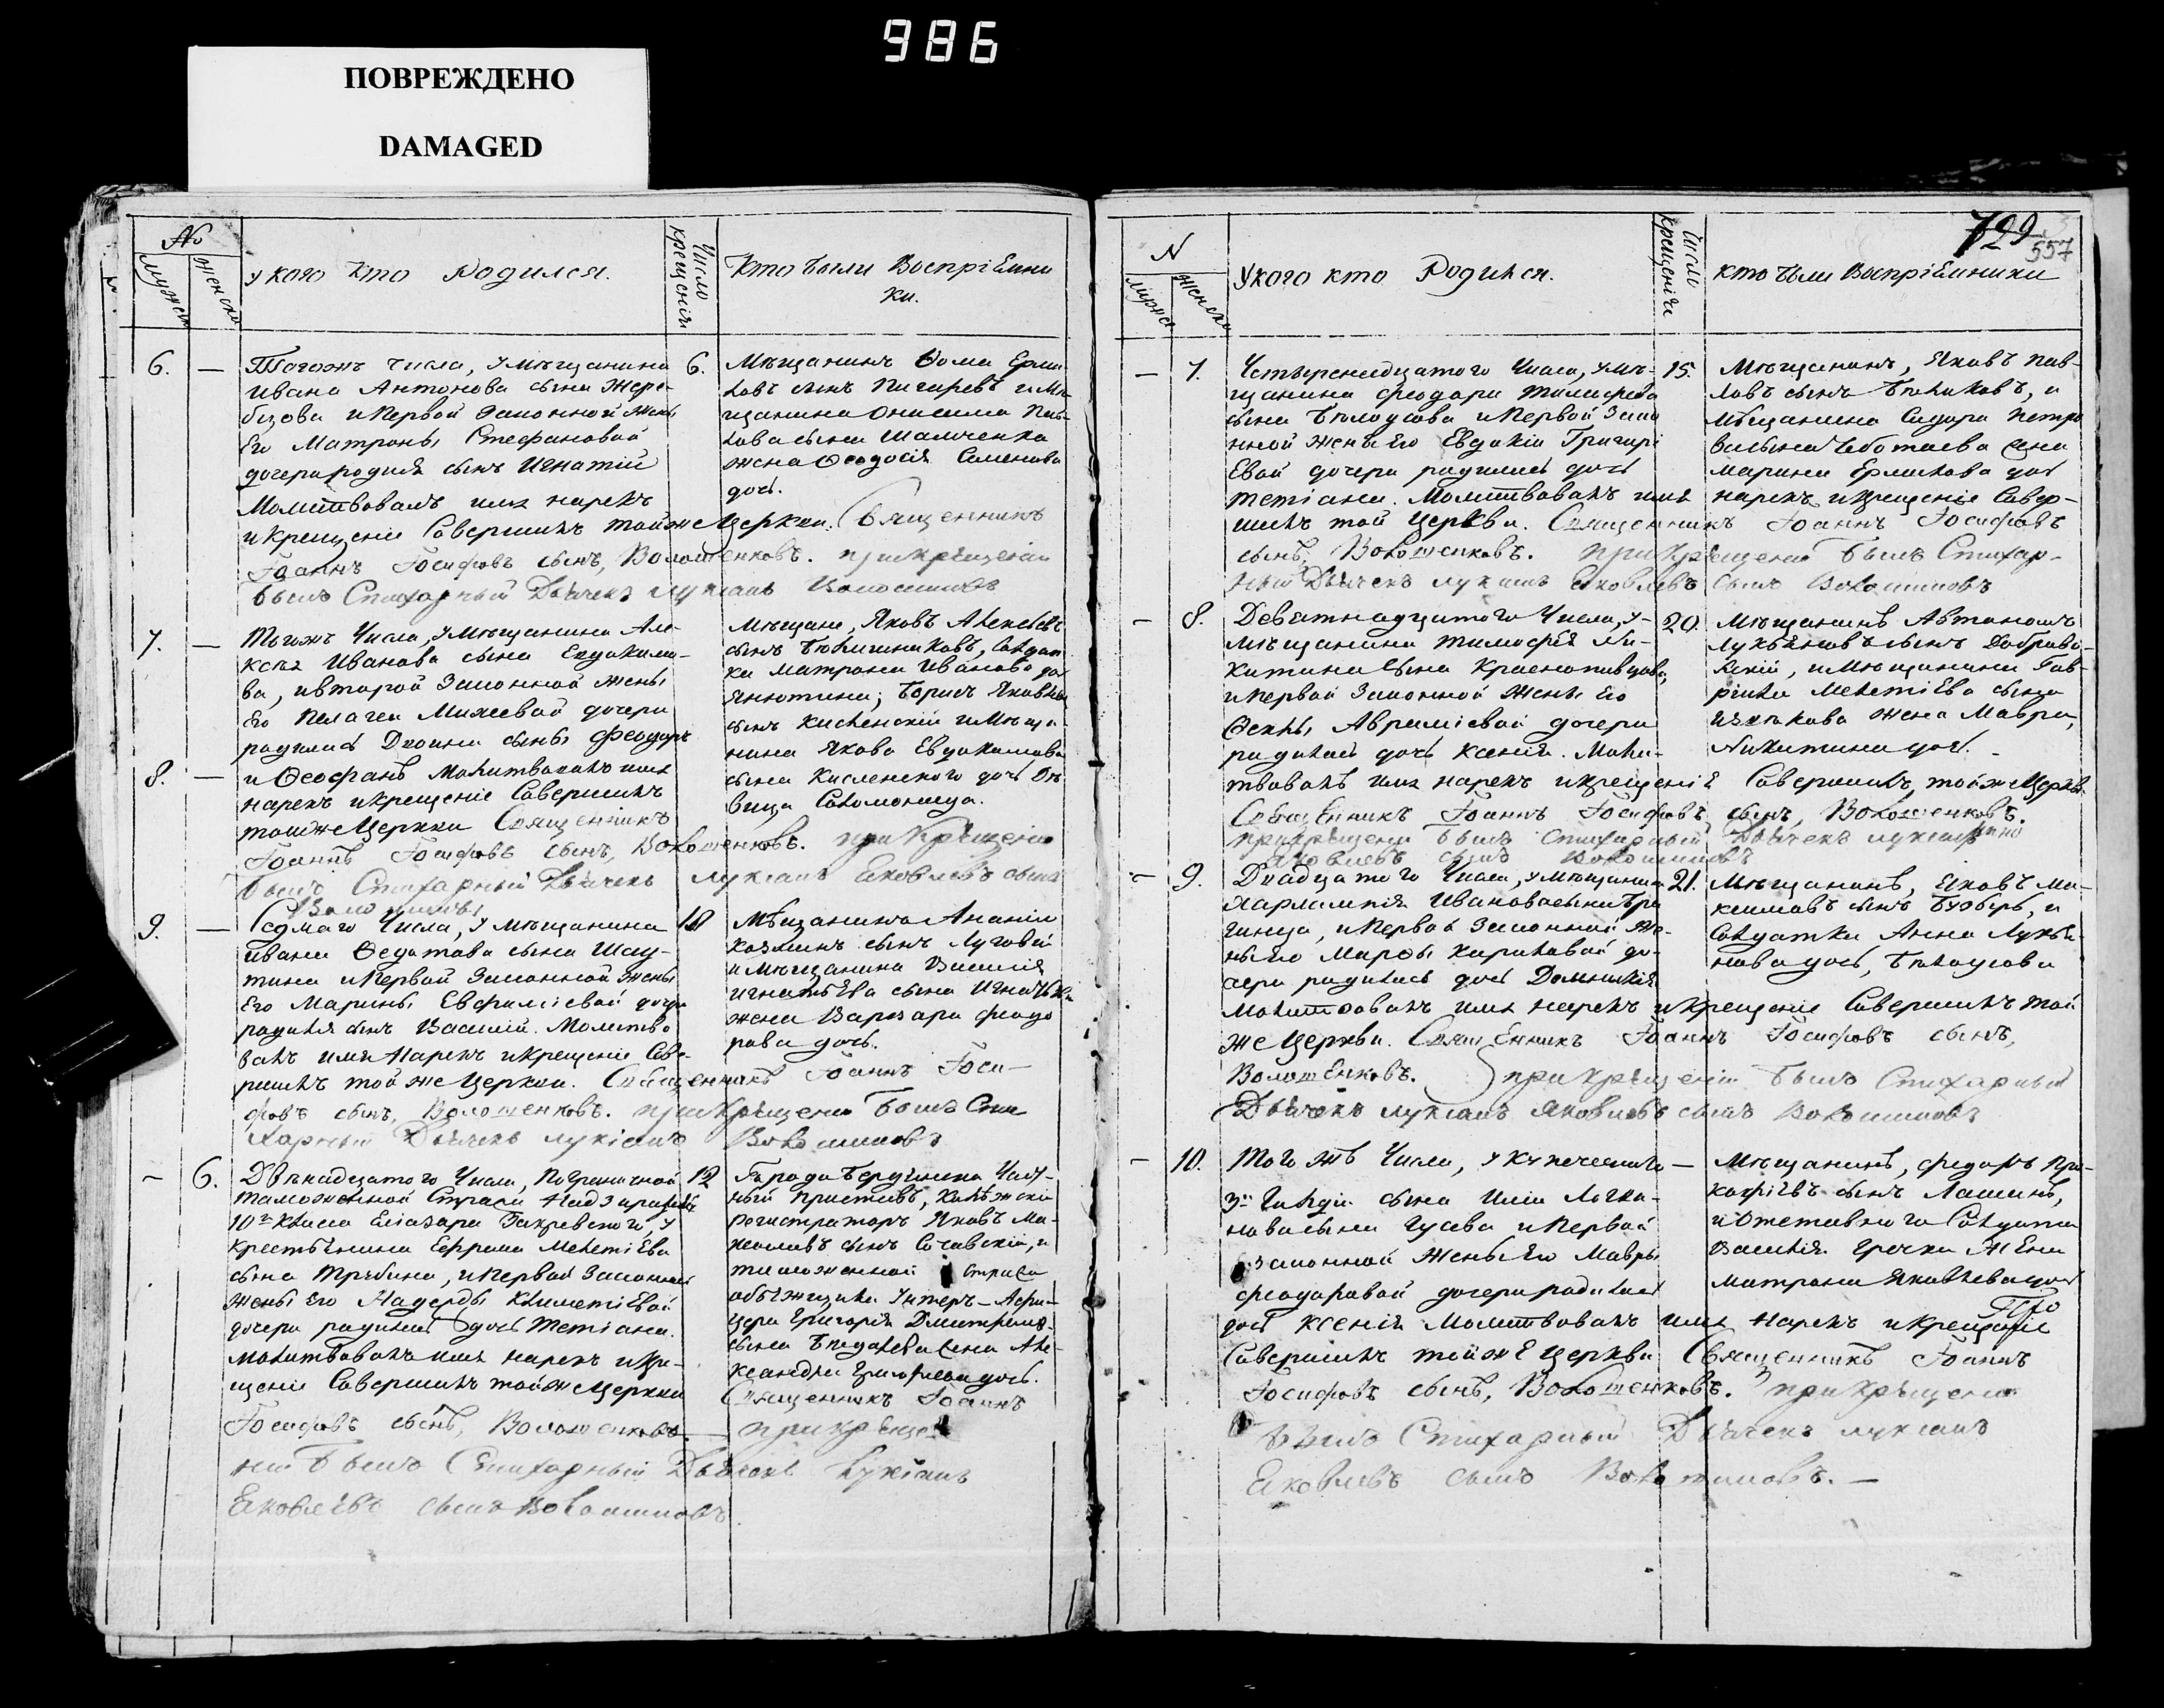 986
ПОВРЕЖДЕНО
DAMAGED
№
мужск
женска
У кого кто родился.
Число крещенія
Кто были Воспріемни
ки.
6. — Тогожъ числа, у мѣщанина 6.
Ивана Антонова сына Жере-
бцова и первой законной жены
Его Матроны Стефановой
дочери родился сынъ Игнатій
Молитвовалъ имя нарекъ
и крещеніе Совершилъ тойже Церкви. Священникъ
Іоаннъ Іосифовъ сынъ, Волошенковъ. при крѣщеніи
былъ Стихарный Дьячекъ лукіанъ Волошиновъ
Мѣщанинъ Ѳома Ерми
ловъ сынъ Пигаревъ и мѣ
щанина Онисима Пав-
лова сына Шамченка
жена Ѳеодосія Семенова
дочь.
7. — Тогожъ Числа, у мѣщанина Але-
ксѣя Иванова сына Евдокимо-
ва, и второй Законной жены
Его Пелагеи Михеевой дочери
родились Двоини сыны Феодоръ
8. — и Ѳеофанъ Молитвовалъ имя
нарекъ и крещеніе Совершилъ
тойже Церкви Священникъ
Іоаннъ Іосифовъ сынъ, Волошенковъ. при Крѣщеніи
былъ Стихарный Дьячекъ лукіанъ Яковлевъ сынъ
Волошиновъ
Мѣщане, Яковъ Алексѣевъ
сынъ, Солдат
ка Матрона Иванова до
Янютина; Борисъ Яковлевъ
сынъ Кисленскій и мѣща-
нина Якова Евдокимова
сына Кисленского дочь Дѣ
вица Соломонида.
9. — Седмаго Числа, у мѣщанина 10
Ивана Ѳедотова сына Шау-
тина и первой Законной жены
Его Марины Евфиміевой дочери
родился сынъ Василій. Молитво
валъ имя нарекъ и крещеніе Сове-
ршилъ той же Церкви. Священникъ Іоаннъ Іоси-
фовъ сынъ, Волошенковъ. при крѣщеніи былъ Сти
харный Дьячекъ лукіанъ Волошиновъ
Мѣщанинъ Ананій
Козминъ сынъ Луговой
и мѣщанина Василія
Игнатьева сына
жена Варвара феодо
рова дочь.
— 6. Двѣнадцатого Числа, пограничной 12
таможенной Стражи Надзирателя
10го класса Еліазара Закревского, у
крестьянина Ефрема Мелетіева
сына Трубина, и первой Законной
жены Его Надежды Климетіевой
дочери родилась дочь Тетіана.
Молитвовалъ имя нарекъ и кре-
щеніе Совершилъ тойже Церкви
Города Бердянска Част-
ный приставъ, колѣжскій
регистраторъ Яковъ Ма-
ксимовъ сынъ, и
таможенной стражи
объѣжщика Унтеръ-Афи-
цера Григорія Дмитріева
сына жена Але-
ксандра Григорьева дочь.
Священникъ Іоаннъ
Іосифовъ сынъ, Волошенковъ. — при крѣще
ніи былъ Стихарный Дьячекъ Лукіанъ
Яковлевъ сынъ Волошиновъ.
729
557
N
мужск
женска
У кого кто Родился.
Число крещенія
кто были Воспріемники
— 7. Четырнадцатого Числа, у мѣ- 15.
щанина феодора Тимофеева
сына Бѣлоусова и первой Зако
нной жены Его Евдокіи Григорі
Евой дочери родилась дочь
Тетіана. Молитвовалъ имя нарекъ и крещеніе Совер-
шилъ той Церкви. Священникъ Іоаннъ Іосифовъ
сынъ, Волошенковъ. при крѣщеніи былъ Стихар-
ный Дьячекъ лукіанъ Яковлевъ сынъ Волошиновъ
Мѣщанинъ, Яковъ Пав-
ловъ сынъ Бѣликовъ, и
мѣщанина Сидора Петро
ва сына Чеботаева жена
Марина Ермилова дочь
— 8. Девятнадцатого Числа, у 20.
мѣщанина Тимофѣя Ни-
китина сына Краснопивцова,
и первой Законной жены Его
Ѳеклы Авраміевой дочери
родилась дочь Ксенія. Моли-
твовалъ имя нарекъ и крещеніе Совершилъ, тойже Церкви
Священникъ Іоаннъ Іосифовъ сынъ, Волошенковъ.
при крѣщеніи былъ Стихарный Дьячекъ лукіанъ
Яковлевъ сынъ Волошиновъ
Мѣщанинъ Автономъ
Лукьяновъ сынъ Доброво-
скій, и мѣщанина Гав-
ріила Мелетіева сына
жена Мавра,
Никитина дочь.
— 9. Двадцатого Числа, у мѣщанина 21.
Харлампія Иванова сына
и первой Законной Же-
ны Его Марѳы Кириловой до-
чери родилась дочь Домникія
Молитвовалъ имя нарекъ и крещеніе Совершилъ той
же Церкви. Священникъ Іоаннъ Іосифовъ сынъ,
Волошенковъ. при крѣщеніи былъ Стихарный
Дьячекъ лукіанъ Яковлевъ сынъ Волошиновъ
Мѣщанинъ, Яковъ Ма-
ксимовъ сынъ, и
Солдатка Анна Лукья-
нова дочь, Бѣлоусова
— 10. Того жъ Числа, у купеческаго —
3й Гильдіи сына Иліи
нова сына Гусева и первой
законной жены Его Мавры
феодоровой дочери родилась
дочь Ксенія Молитвовалъ имя нарекъ и крещеніе
Совершилъ тойже Церкви Священникъ Іоаннъ
Іосифовъ сынъ, Волошенковъ. при крѣщеніи
былъ Стихарный Дьячекъ лукіанъ
Яковлевъ сынъ Волошиновъ. —
Мѣщанинъ, федоръ Про-
кофіевъ сынъ Лашинъ,
и Отставного Солдата
Василія Гречки Жена
Матрона Яковлева дочь